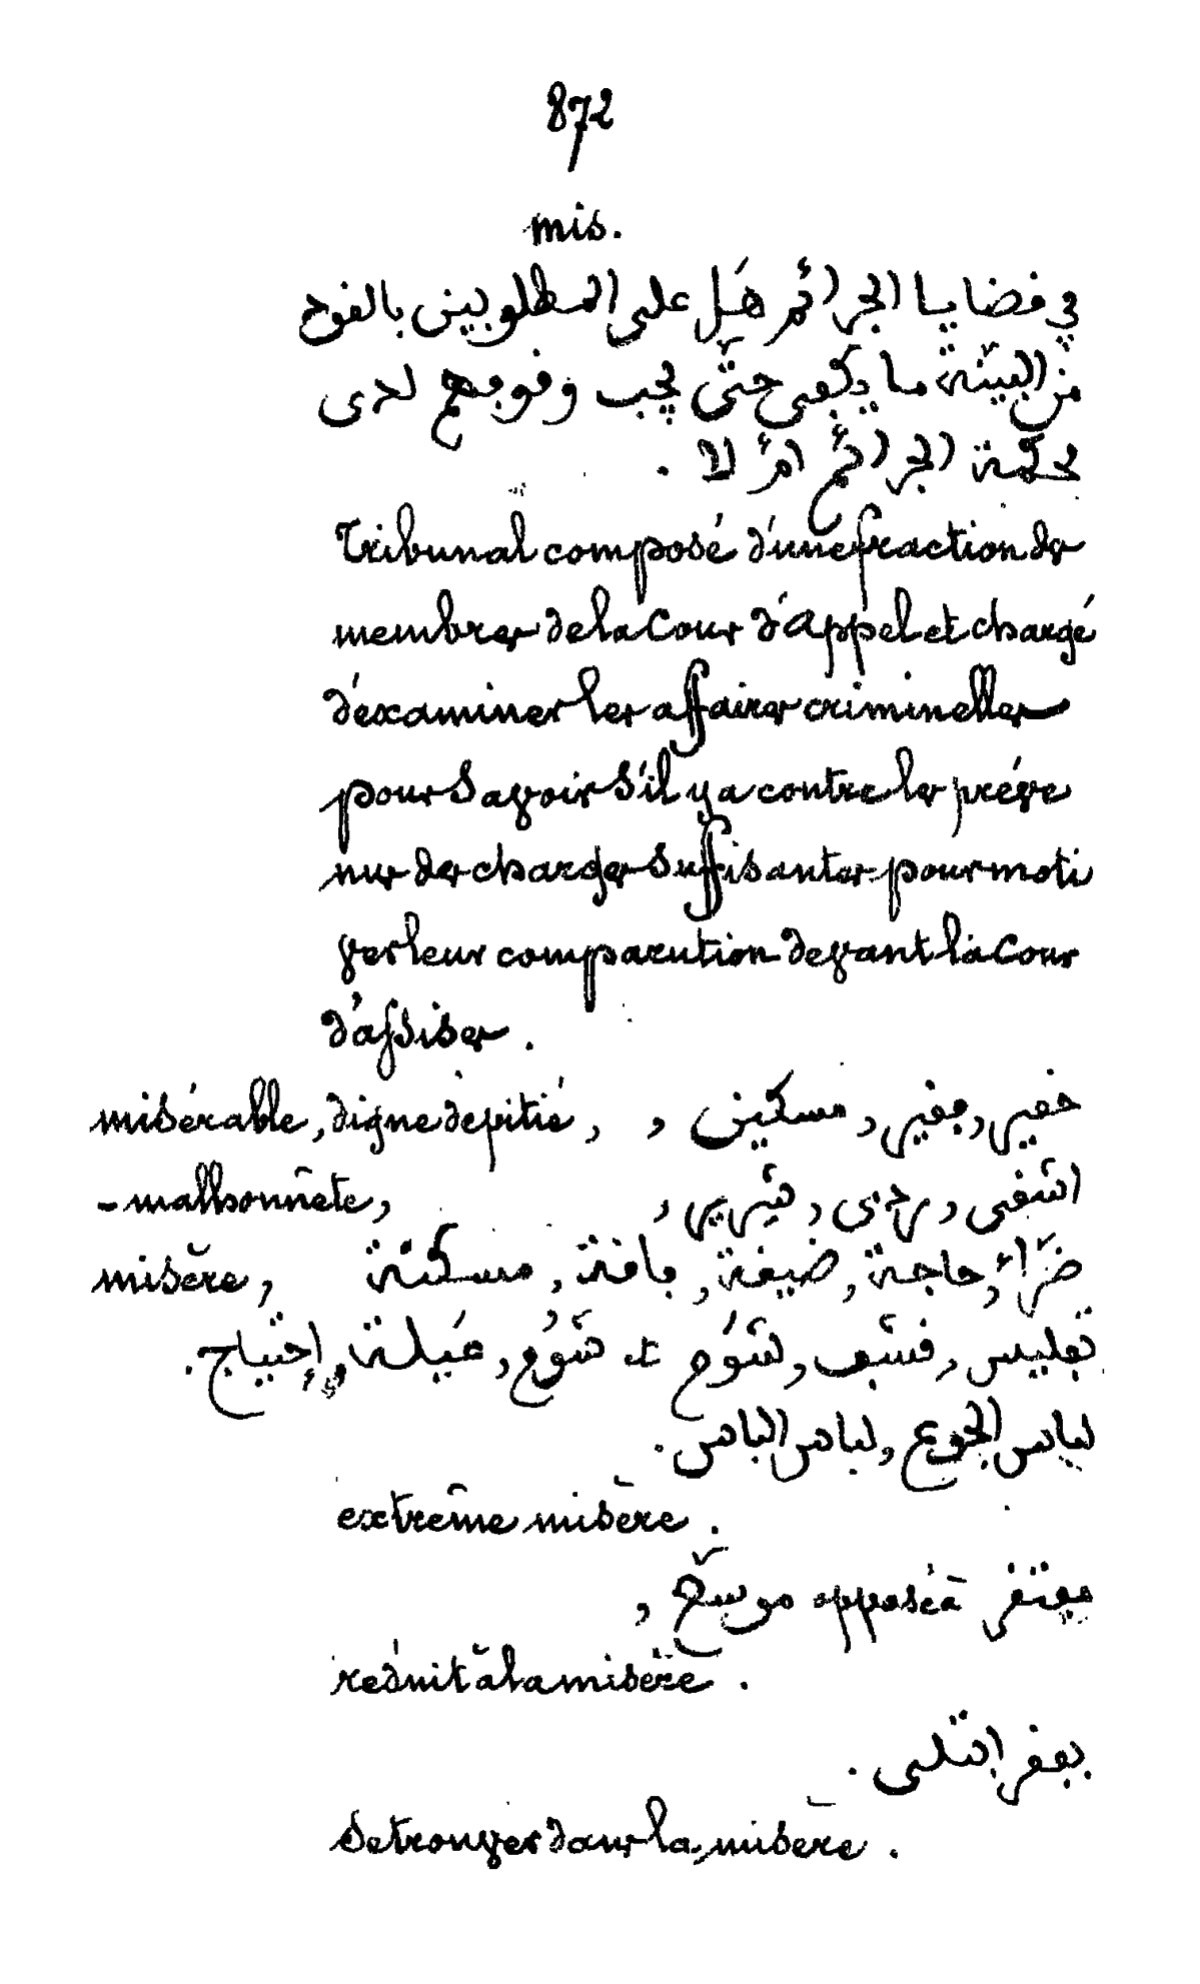 872
mis.
في قضايا الجرائم هَل على المطلوبين بالفوح
من البيّنة ما يكفى حتّى يجب وقوفهم لدى
محكمة الجرائم امْ لا .
Tribunal composé d'une fraction des
membres de la Cour d'Appel et chargé
d'éxaminer les affaires criminelles
pour savoir s'il y a contre les préve
nus des charges suffisantes pour moti
ver leur comparution devant la Cour
d'assises .
misérable, digne de pitié, حقير, فقير, مسكين ,
- malhonnête, اشقى, ردى, شرير ,
misère, ضرّاء, حاجة, ضيقة, فاقة, مسكنة
تفليس, قشف, شوم et شوُم, عَيلة, إحتياج .
لباس الجوع, لباس الباس .
extrême misère .
مفتقر opposé à موسّع ,
réduit à la misère .
بفقر ابتلى .
se trouver dans la misère .